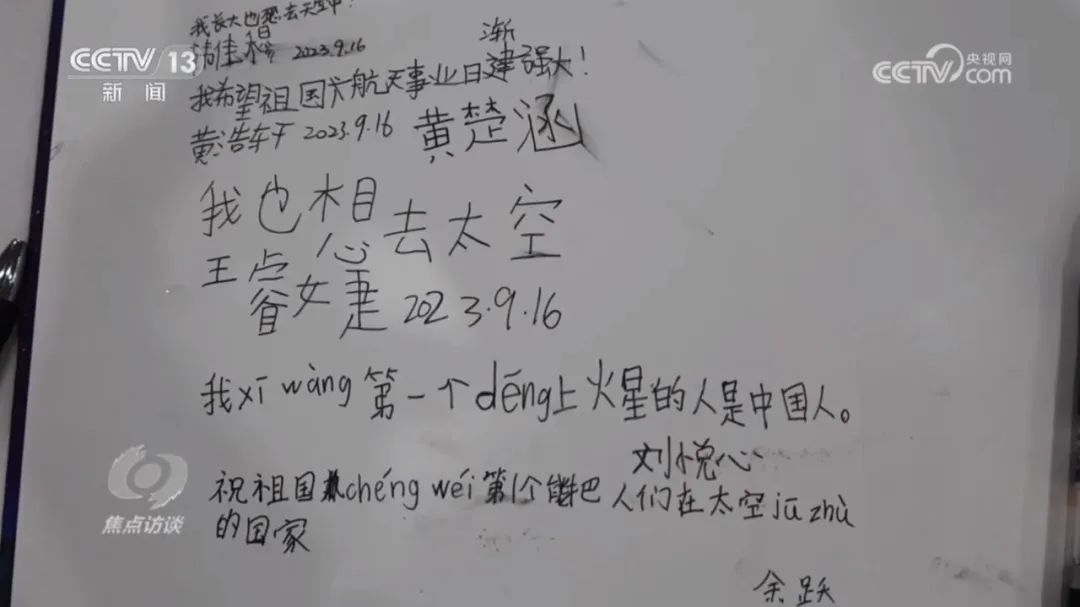 我长大也想去天空中!
CCTV 13
新闻
佳想 2023.9.16
央视网
CCTV.com
渐
我希望祖国航天事业日建强大!
黄浩轩 2023.9.16 黄楚涵
我也想去太空
王睿婕 2023.9.16
我xī wàng第一个dēng上火星的人是中国人。
刘悦心
祝祖国chéng wéi第1个能把人们在太空jū zhù
的国家
焦点访谈
余跃